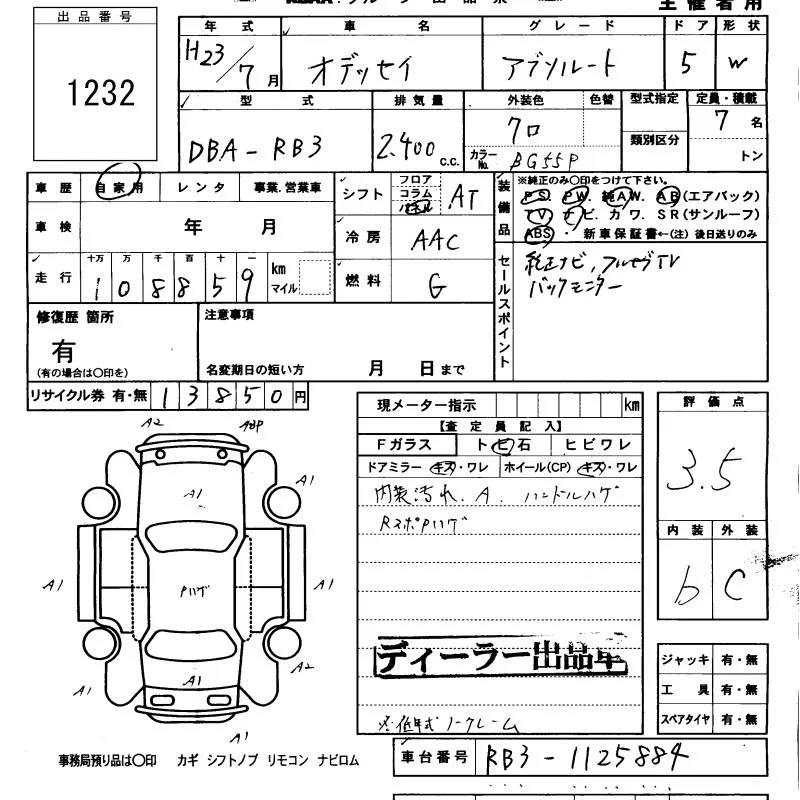 主催者用
出品番号
1232
年式 車名 グレード ドア 形状
H23/7月 オデッセイ アブソルート 5 W
型式 排気量 外装色 色替 型式指定 定員・積載
DBA-RB3 2.400 c.c. クロ 類別区分 7名
カラーNo. BG55P トン
車歴 自家用 レンタ 事業.営業車
車検 年 月
走行 十万 万 千 百 十 一 km マイル
108859
シフト フロア コラム パネル AT
冷房 AAC
燃料 G
装備品 ※純正のみ〇印をつけて下さい。
PS. PW. 純AW. AB(エアバック)
TV. ナビ. カワ. SR(サンルーフ)
ABS・ 新車保証書←(注)後日送りのみ
セールスポイント
純正ナビ,フルセグTV
バックモニター
修復歴 箇所
有
(有の場合は〇印を)
注意事項
名変期日の短い方 月 日まで
リサイクル券 有・無 13850円
現メーター指示 km
【査定員記入】
Fガラス トビ石 ヒビワレ
ドアミラー キズ・ワレ ホイール(CP) キズ・ワレ
内装汚れ.A. ハンドルハゲ
RスポPハゲ
ディーラー出品車
※低年式ノークレーム
評価点
3.5
内装 外装
b C
ジャッキ 有・無
工具 有・無
スペアタイヤ 有・無
A2
A1
A1
A1
Pハゲ
A1
A1
A2
A1
A1
A1
事務局預り品は〇印 カギ シフトノブ リモコン ナビロム
車台番号 RB3-1125884